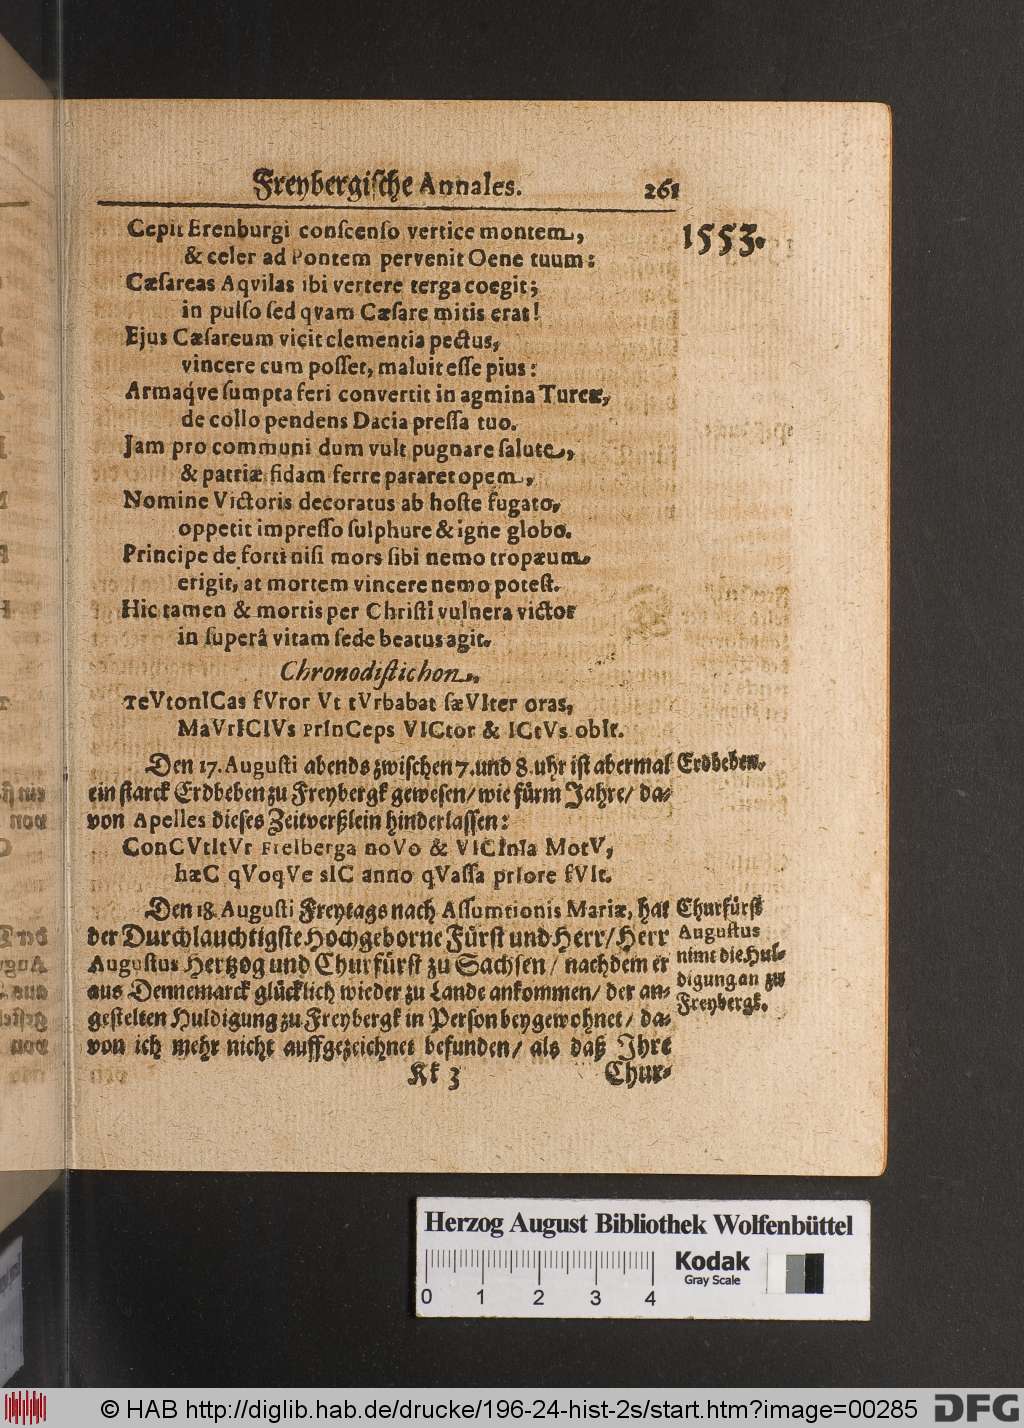 Freybergische Annales. 261
1553.
Cepit Erenburgi conscenso vertice montem,
& celer ad Pontem pervenit Oene tuum:
Cæsareas Aqvilas ibi vertere terga coegit;
in pulso sed qvam Cæsare mitis erat!
Ejus Cæsareum vicit clementia pectus,
vincere cum posset, maluit esse pius:
Armaq́ve sumpta feri convertit in agmina Turcæ,
de collo pendens Dacia pressa tuo.
Jam pro communi dum vult pugnare salute,
& patriæ fidam ferre pararet opem,
Nomine Victoris decoratus ab hoste fugato,
oppetit impresso sulphure & igne globo.
Principe de forti nisi mors sibi nemo tropæum
erigit, at mortem vincere nemo potest.
Hic tamen & mortis per Christi vulnera victor
in superâ vitam sede beatus agit.
Chronodistichon.
TeVtonICas fVror Vt tVrbabat sæVIter oras,
MaVrICIVs PrInCeps VICtor & ICtVs obIt.
Den 17. Augusti abends zwischen 7. und 8. uhr ist abermal
ein starck Erdbeben zu Freybergk gewesen/ wie fürm Jahre/ da-
von Apelles dieses Zeitverßlein hinderlassen:
Erdbeben.
ConCVtItVr FreIberga noVo & VICInIa MotV,
hæC qVoqVe sIC anno qVassa prIore fVIt.
Den 18. Augusti Freytags nach Assumtionis Mariæ, hat
der Durchlauchtigste Hochgeborne Fürst und Herr/ Herr
Augustus Hertzog und Churfürst zu Sachsen/ nachdem er
aus Dennemarck glücklich wieder zu Lande ankommen/ der an-
gestelten Huldigung zu Freybergk in Person beygewohnet/ da-
von ich mehr nicht auffgezeichnet befunden/ als daß Ihre
Churfürst
Augustus
nimt die Hul-
digung an zu
Freybergk.
Kk 3 Chur-
Herzog August Bibliothek Wolfenbüttel
Kodak
Gray Scale
0 1 2 3 4
© HAB http://diglib.hab.de/drucke/196-24-hist-2s/start.htm?image=00285
DFG